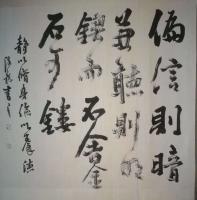 偏信則暗
兼聽則明
鍥而不舍金
石可鏤
靜以脩身儉以養德